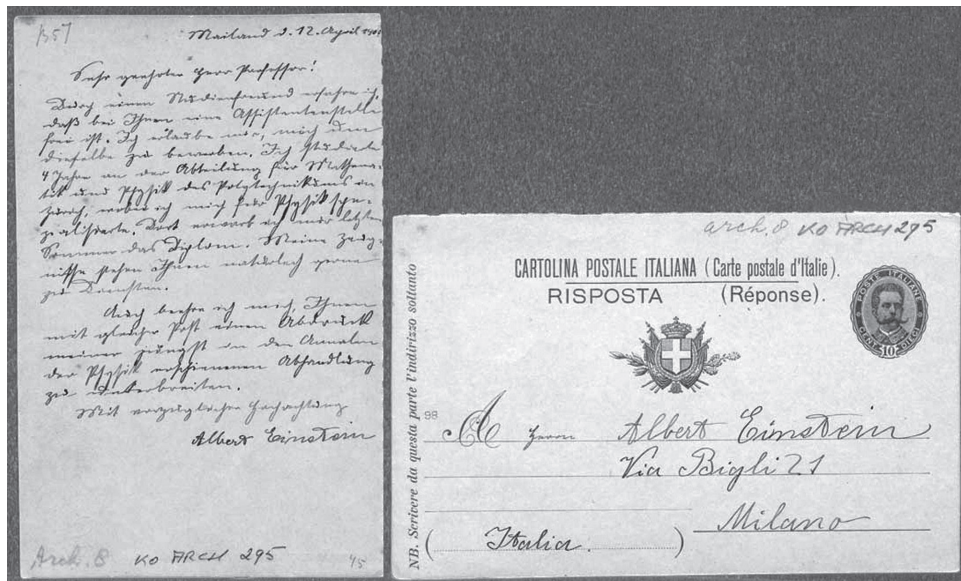 B57
Mailand d. 12. April 1901
Sehr geehrter Herr Professor!
Durch einen Studienfreund erfahre ich,
daß bei Ihnen eine Assistentenstelle
frei ist. Ich erlaube mir, mich um
dieselbe zu bewerben. Ich studierte
4 Jahre an der Abteilung für Mathema-
tik und Physik des Polytechnikums in
Zürich, wobei ich mich für Physik spe-
zialisierte. Dort erwarb ich mir letzten
Sommer das Diplom. Meine Zeug-
nisse stehen Ihnen natürlich gerne
zu Diensten.
Auch beehre ich mich Ihnen
mit gleicher Post einen Abdruck
meiner jüngst in den Annalen
der Physik erschienenen Abhandlung
zu unterbreiten.
Mit vorzüglicher Hochachtung
Albert Einstein
Arch. 8 KO ARCH 295
45
arch. 8 KO ARCH 295
CARTOLINA POSTALE ITALIANA (Carte postale d'Italie).
RISPOSTA (Réponse).
POSTE ITALIANE
CENT. 10 DIECI
NB. Scrivere da questa parte l'indirizzo soltanto
98
A Herrn Albert Einstein
Via Bigli 21
Milano
(Italia.)